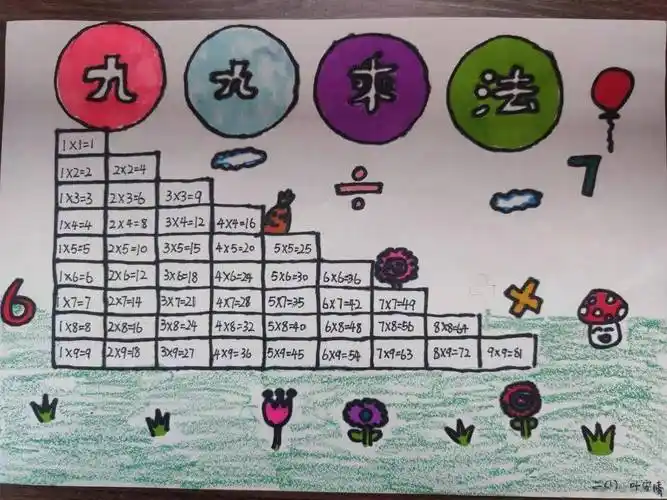 九九乘法
1×1=1
1×2=2 2×2=4
1×3=3 2×3=6 3×3=9
1×4=4 2×4=8 3×4=12 4×4=16
1×5=5 2×5=10 3×5=15 4×5=20 5×5=25
1×6=6 2×6=12 3×6=18 4×6=24 5×6=30 6×6=36
1×7=7 2×7=14 3×7=21 4×7=28 5×7=35 6×7=42 7×7=49
1×8=8 2×8=16 3×8=24 4×8=32 5×8=40 6×8=48 7×8=56 8×8=64
1×9=9 2×9=18 3×9=27 4×9=36 5×9=45 6×9=54 7×9=63 8×9=72 9×9=81
÷
7
6
×
二(1) 叶